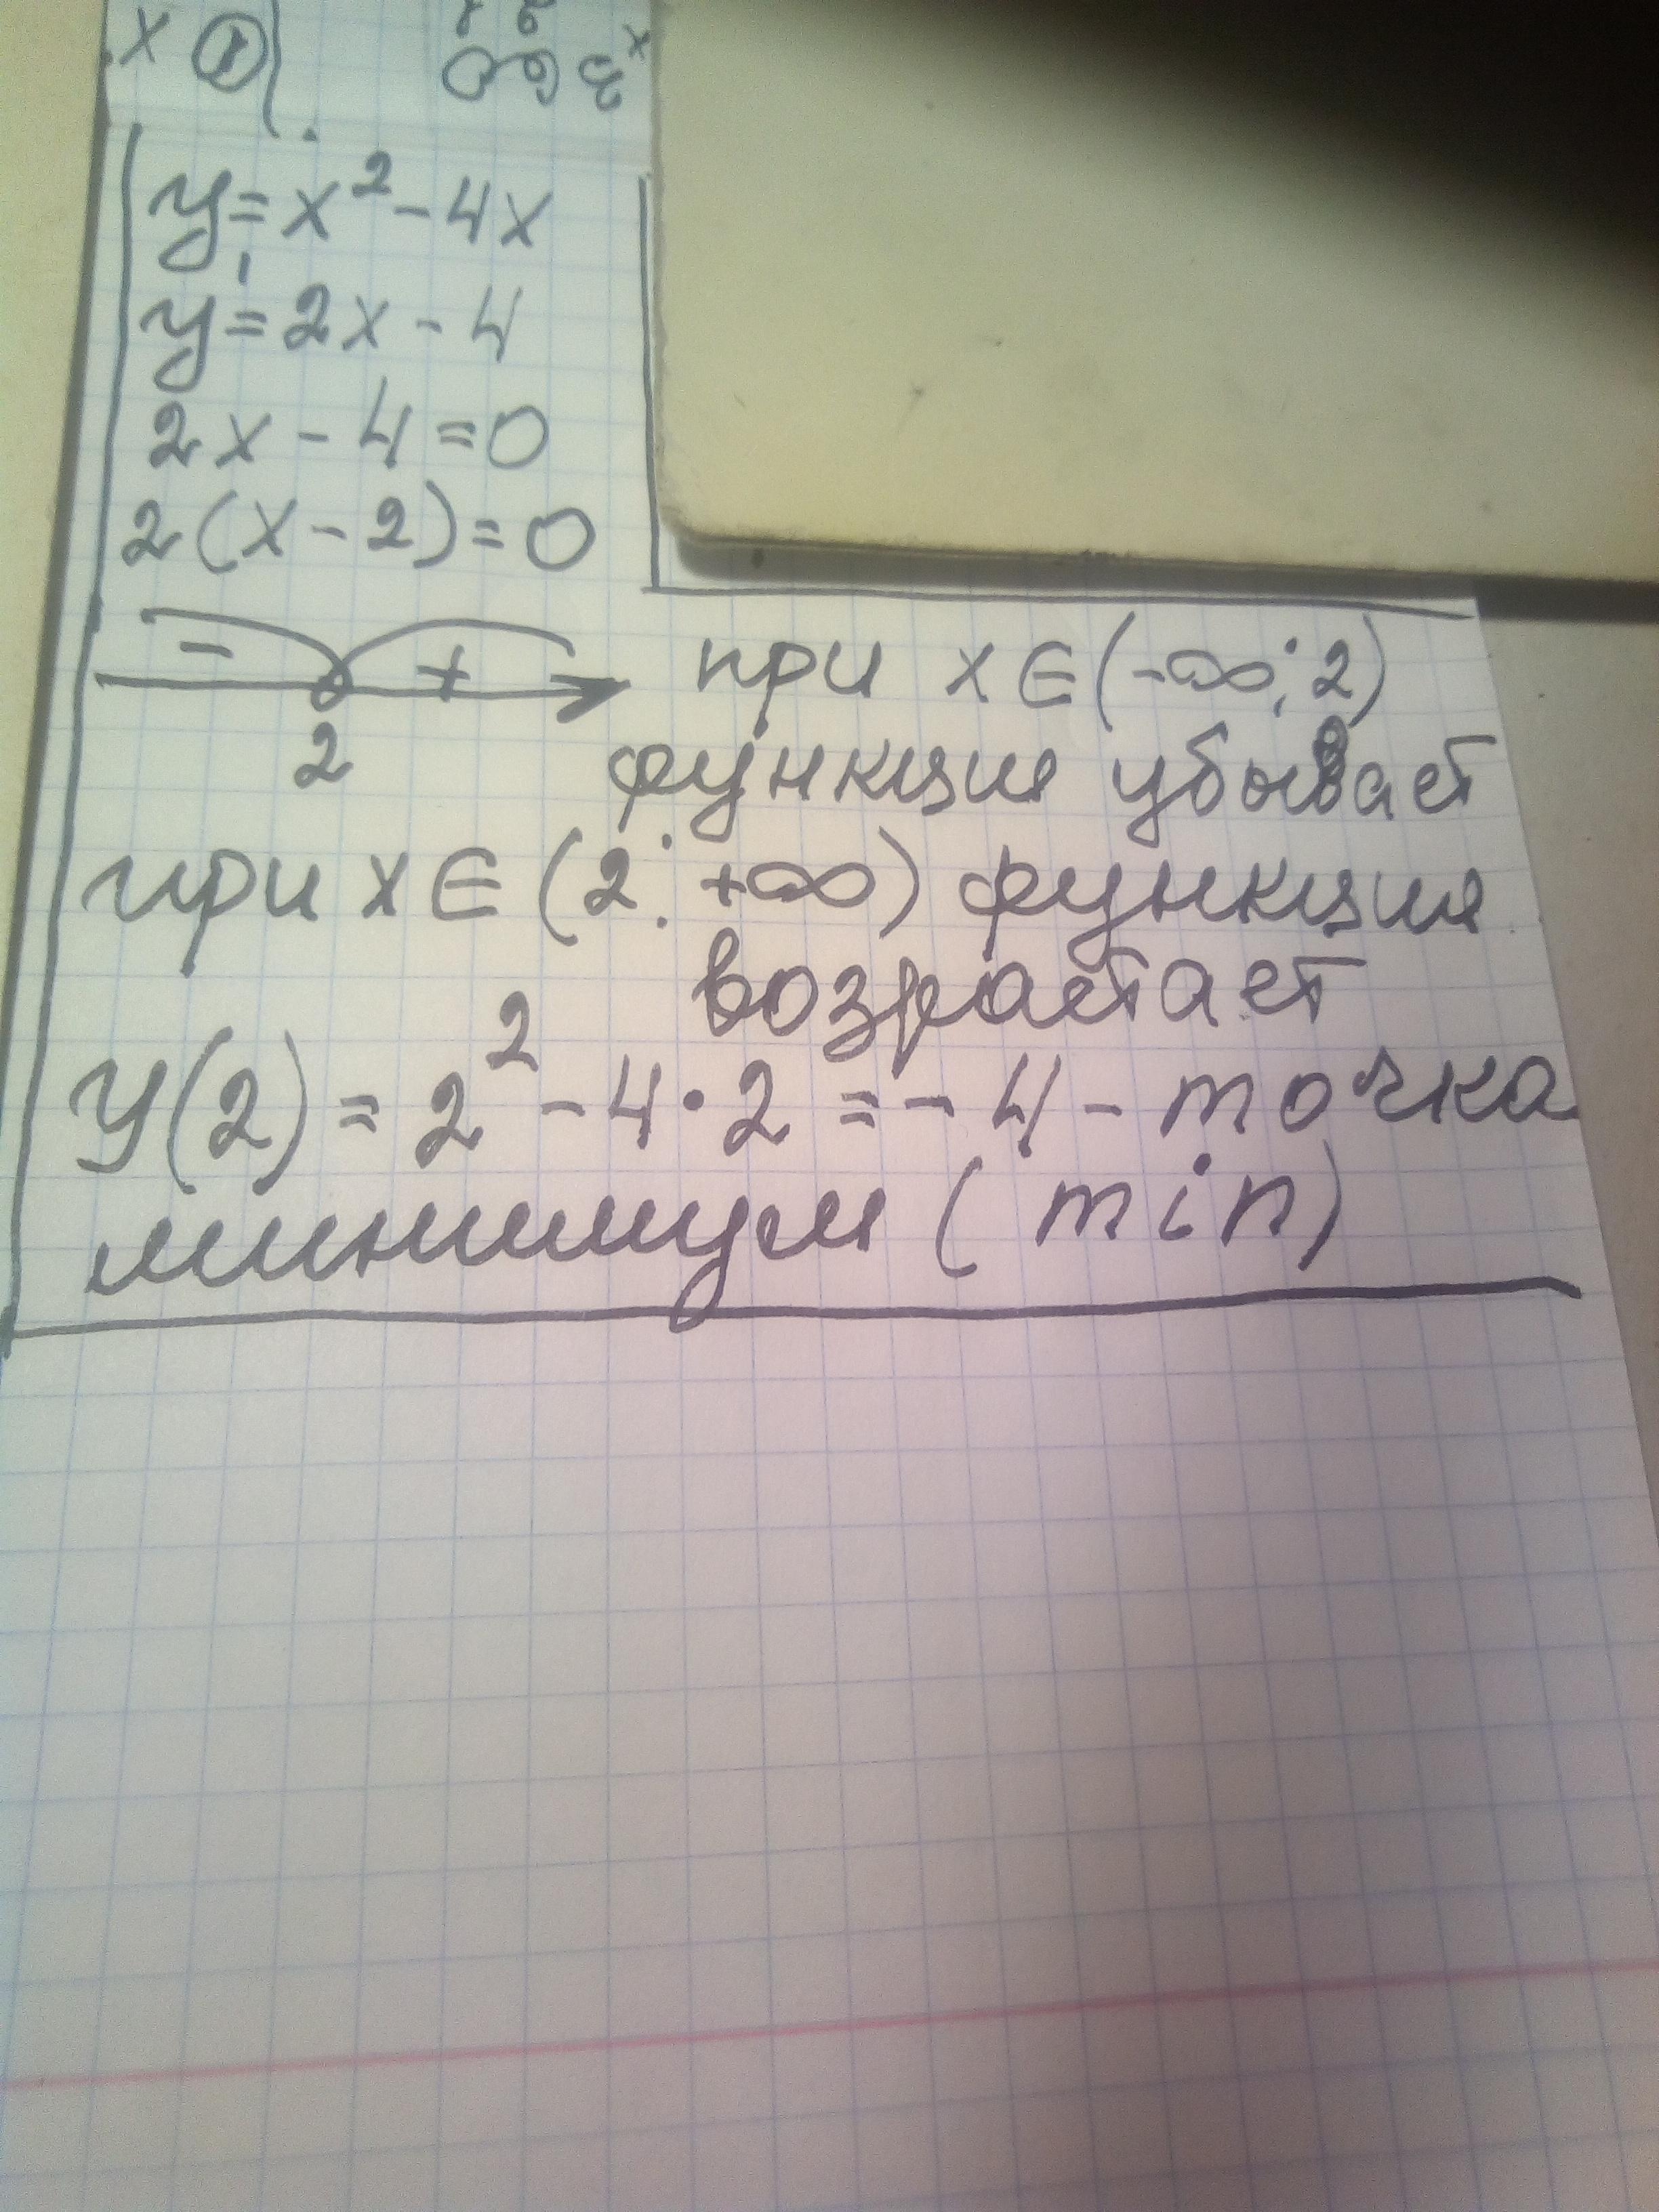 x ①
y = x² - 4x
y' = 2x - 4
2x - 4 = 0
2(x - 2) = 0
- + при x ∈ (-∞; 2)
2 функция убывает
при x ∈ (2; +∞) функция
возрастает
y(2) = 2² - 4 · 2 = -4 - точка
минимум (min)